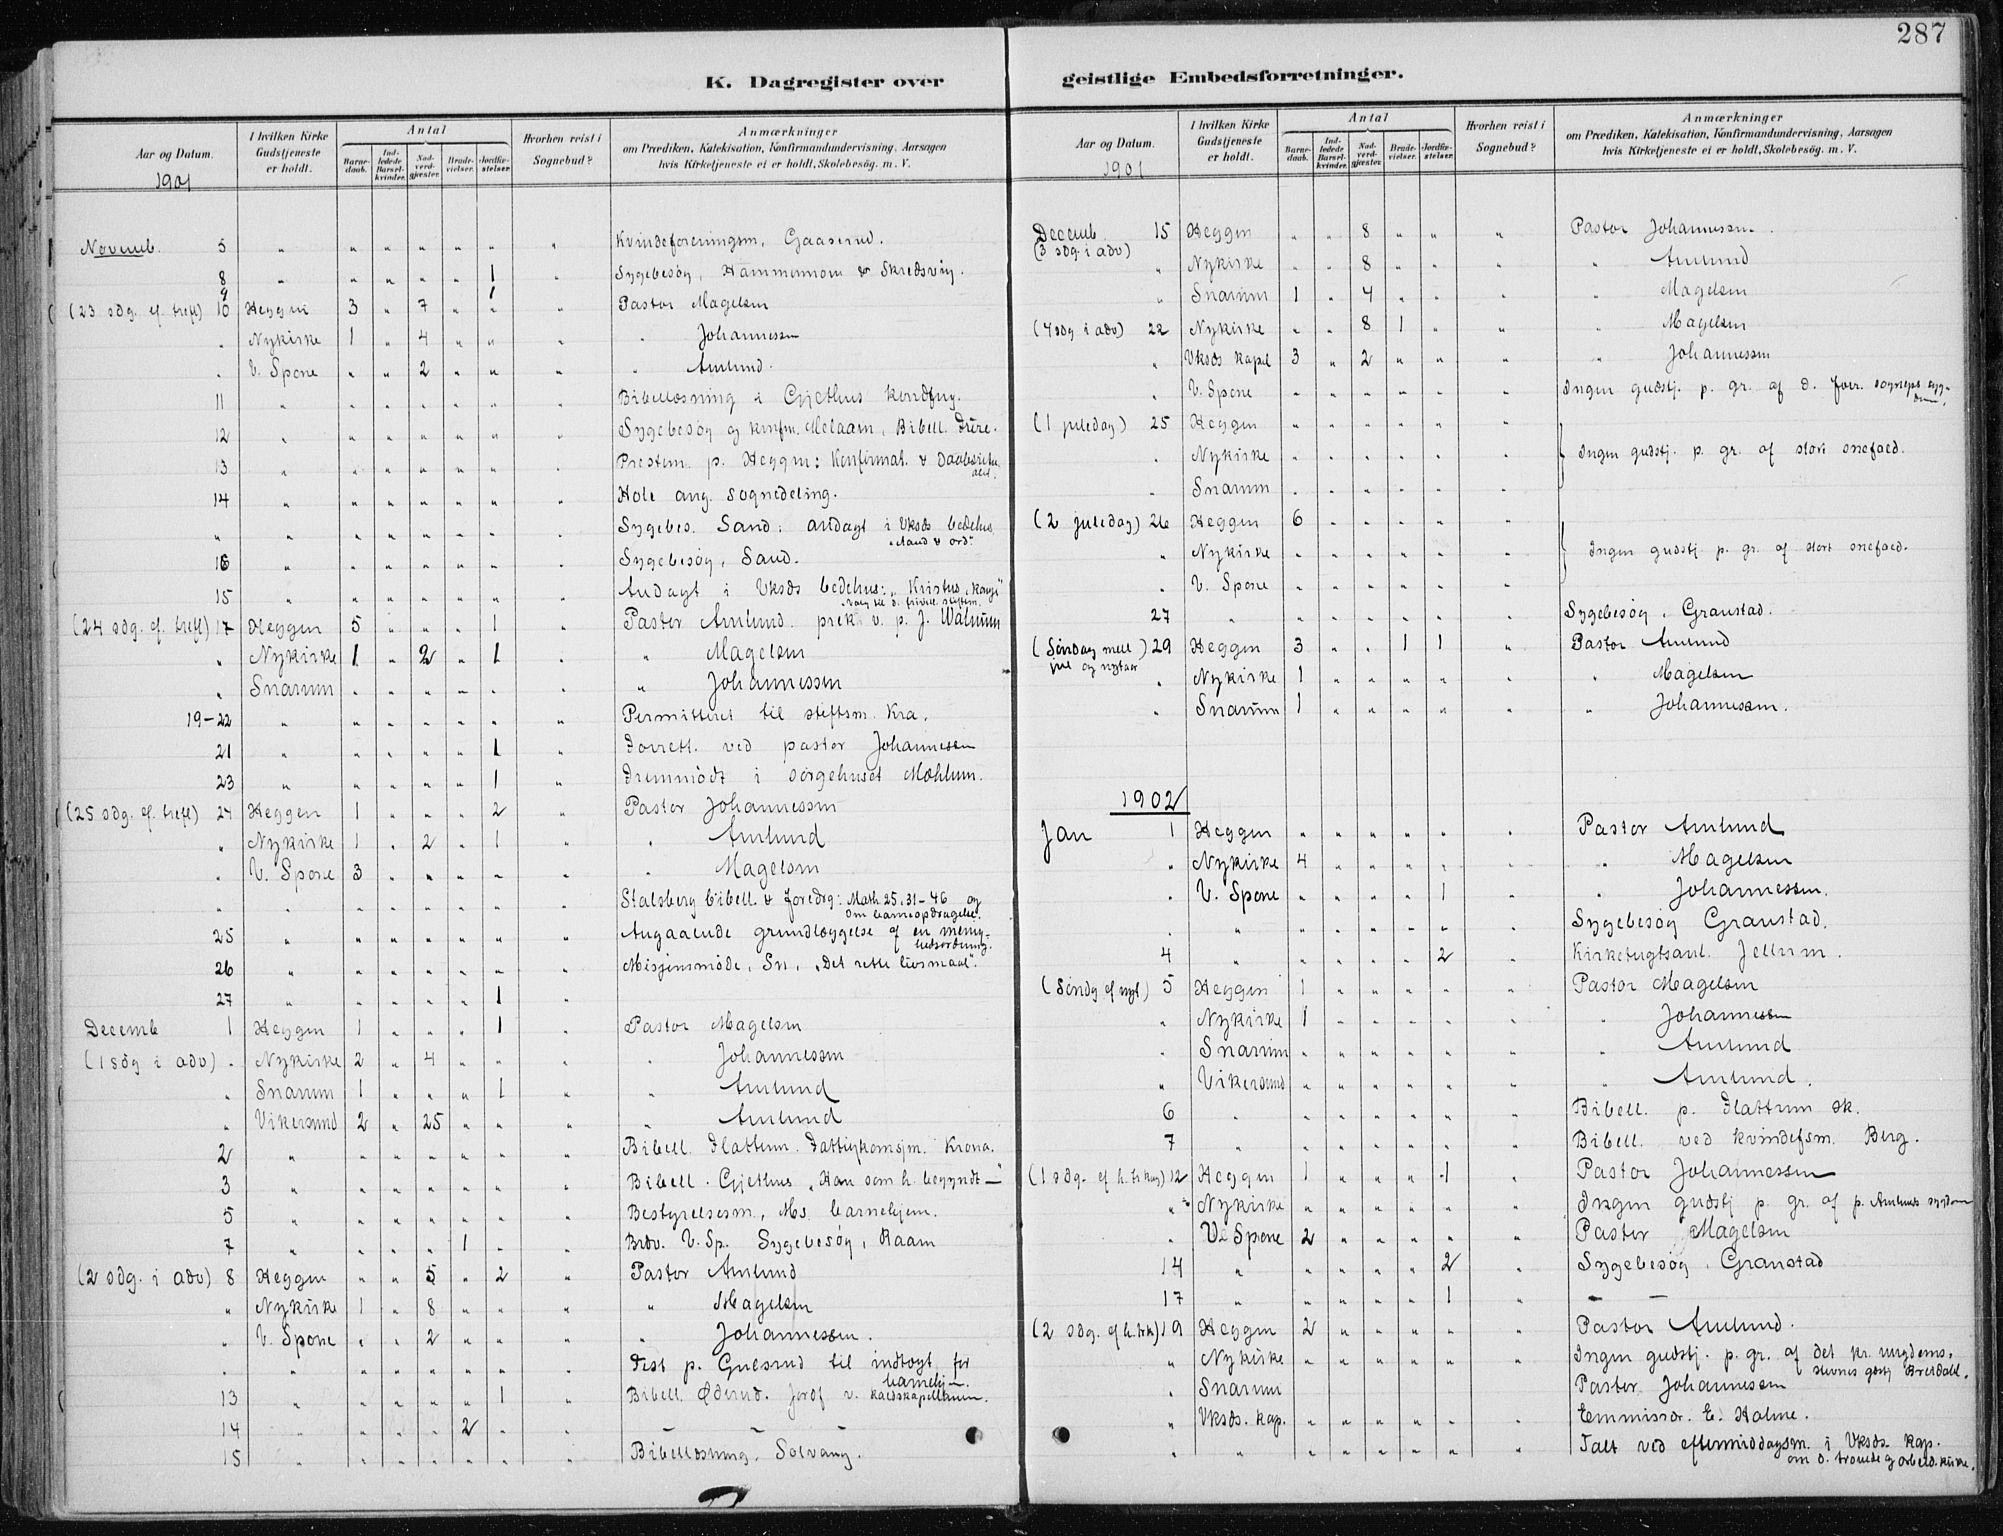 287
K. Dagregister over
Aar og Datum.
I hvilken Kirke Gudstjeneste er holdt.
Antal
Barnedaab.
Indledede Barselkvinder.
Nadverdgjæster.
Brudevielser.
Jordfæstelser.
Hvorhen reist i Sognebud?
Anmærkninger
om Prædiken, Katekisation, Konfirmandundervisning, Aarsagen
hvis Kirketjeneste ei er holdt, Skolebesøg. m. V.
1901
Novemb. 5 " " " " " " " Kvindeforeningsm. Gaaserud.
8 " " " " " 1 Sygebesøg, Hammermoen & Skredsvig.
9 1
(23 sdg. ef. tref) 10 Heggen 3 " 7 " " " Pastor Magelsen
" Nykirke 1 " 4 " " " " Johannessen
" V. Spone " " 2 " " " " Amlund.
11 " " " " " " " Bibellæsning i Gjethus
12 " " " " " " " Sygebesøg og Melaaen, Bibell. Fure.
13 " " " " " " " Prestem. p. Heggen: Konfirmat. &
14 " " " " " " " Hole ang. sognedeling.
" " " " " " " " Sygebes. Sand: andagt i Vksds bedehus
"Aand & ord".
16 " " " " " " " Sygebesøg, Sand.
15 " " " " " " " Andagt i Vksds bedehus: "Kristus, konge"
(24 sdg. ef. tref) 17 Heggen 5 " " " 1 " Pastor Amlund. præk. v. p. J. Walnum
" Nykirke 1 " 2 " 1 " " Magelsen
" Snarum " " " " " " " Johannessen
19-22 " " " " " " " Permitteret til stiftsm. Kra.
21 " " " " " 1 " Forrett. ved pastor Johannessen
23 " " " " " 1 " Fremmødt i sørgehuset Mæhlum.
(25 sdg. ef. tref) 24 Heggen 1 " " " 2 " Pastor Johannessen
" Nykirke 1 " 2 " 1 " " Amlund
" V. Spone 3 " " " " " " Magelsen
" " " " " " " " Stalsberg bibell. & foredrg: Math 25.31-46 og
om barneopdragelse.
25 " " " " " " " Angaaende grundlæggelse af en menighedsordning.
26 " " " " " " " Misjonsmøde, Sn. "Det rette livsmaal".
27 " " " " " 1
Decemb 1 Heggen 1 " " " 1 " Pastor Magelsen
(1 sdg i adv) " Nykirke 2 " 4 " " " " Johannessen
" Snarum 1 " " " 1 " " Amlund
" Vikersund 2 " 25 " " " " Amlund
2 " " " " " " " Bibell. Flattum. Fattigkomsjm. Krona.
3 " " " " " " " Bibell. Gjethus "Han som h. begyndt —"
5 " " " " " " " Bestyrelsesm. Ms. barnehjem.
7 " " " " 1 " " Brdv. V. Sp. Sygebesøg, Kaam
(2 sdg. i adv) 8 Heggen " " 5 " 2 " Pastor Amlund
" Nykirke 1 " 8 " " " " Magelsen
" V. Spone " " 2 " " " " Johannessen.
" " " " " " " " Fest p. Gulsrud til indtægt for
barnehjem.
13 " " " " " 1 " Bibell. Øderud. Jordf v. kaldskapellanen.
14 " " " " 2 " " — —
15 " " " " " " " Bibellæsning, Solvang.
geistlige Embedsforretninger.
Aar og Datum.
I hvilken Kirke Gudstjeneste er holdt.
Antal
Barnedaab.
Indledede Barselkvinder.
Nadverdgjæster.
Brudevielser.
Jordfæstelser.
Hvorhen reist i Sognebud?
Anmærkninger
om Prædiken, Katekisation, Konfirmandundervisning, Aarsagen
hvis Kirketjeneste ei er holdt, Skolebesøg. m. V.
1901
Decemb 15 Heggen " " 8 " " " Pastor Johannessen
(3 sdg i adv) " Nykirke " " 8 " " " " Amlund
" Snarum 1 " 4 " " " " Magelsen
(4 sdg i adv) 22 Nykirke " " 8 1 " " " Magelsen
" Vksds kapel 3 " 2 " " " " Johannessen
V. Spone " " " " " " Ingen gudstj. p. gr. af d. forr. sogneps sygdom.
(1 juledag) 25 Heggen " " " " " "
" Nykirke " " " " " " Ingen gudstj. p. gr. af stort snefald.
" Snarum " " " " " "
(2 juledag) 26 Heggen 6 " " " " "
" Nykirke " " " " " " Ingen gudstj p. gr. af stort snefald.
" V. Spone " " " " " "
27 " " " " " " " Sygebesøg, Granstad.
(Søndag mell jul og nytaar) 29 Heggen 3 " " 1 1 " Pastor Amlund
" Nykirke 1 " " " " " " Magelsen
" Snarum 1 " " " " " " Johannessen.
1902
Jan 1 Heggen " " " " " " Pastor Amlund
" Nykirke 4 " " " " " " Magelsen
" V. Spone " " " " 1 " " Johannessen.
" " " " " " " " Sygebesøg Granstad.
4 " " " " " 2 " Kirketugtsanl. Jellum.
(Søndg ef nyt) 5 Heggen 1 " " " " " Pastor Magelsen
" Nykirke 1 " " " " " " Johannessen
" Snarum " " " " " " " Amlund
" Vikersund " " " " " " " Amlund.
6 " " " " " " " Bibell. p. Flattum sk.
7 " " " " " " " Bibell. ved kvindefsm. Berg.
(1 sdg. ef h. tr kng) 12 Heggen 1 " " " 1 " Pastor Johannessen
" Nykirke " " " " " " Ingen gudstj p. gr. af p. Amlunds sygdom
" V. Spone 2 " " " " " Pastor Magelsen
14 " " " " " 2 " Sygebesøg. Granstad
17 " " " " " 1 " — —
(2 sdg. ef h. trk) 19 Heggen 2 " " " " " Pastor Amlund.
" Nykirke " " " " " " Ingen gudstj. p. gr. af det kr. ungdoms-
stevnes gdstj Breidabl.
" Snarum Pastor Johannessen
" Vksds. kap. " " " " " " Emmissær. E. Holme.
" " " " " " " " Talt ved eftermiddagsm. i Vksds kap.
om d. troende og arbeid. kirke.